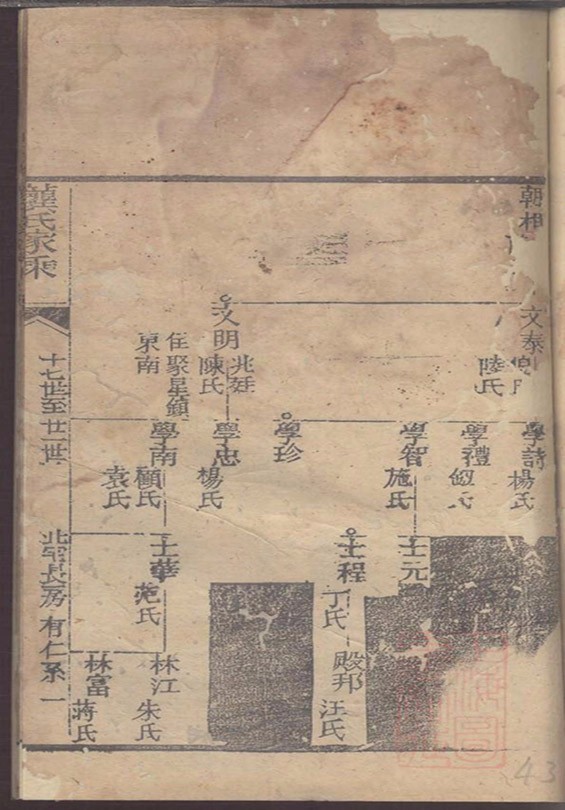 朝相
文泰
陸氏
文明
兆廷
陳氏
住聚星鎮
東南
學詩
楊氏
學禮
學智
施氏
學珍
學忠
楊氏
學南
顧氏
袁氏
士元
士程
丁氏
士華
范氏
殿邦
汪氏
林江
朱氏
林富
蔣氏
龔氏家乘
十七世至廿一世
北宅長房有仁系一
43